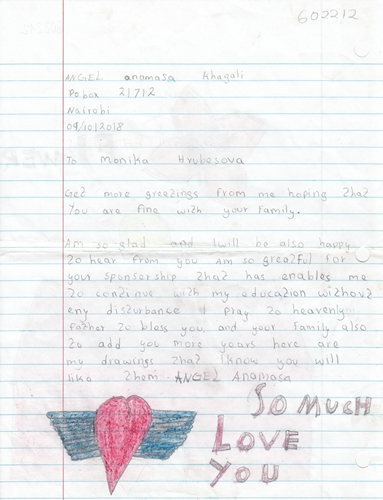 602212
ANGEL anamasa Khagali
Po.box 21712
Nairobi
09/10/2018
To Monika Hrubesova
Get more greetings from me hoping that
You are fine with your family.
Am so glad and I will be also happy
to hear from you Am so greatful for
your sponsership that has enables me
to continue with my education without
eny disturbance I pray to heavenly
father to bless you and your family also
to add you more years here are
my drawings that I know you will
like them. ANGEL Anamasa
SO MUCH
LOVE
YOU